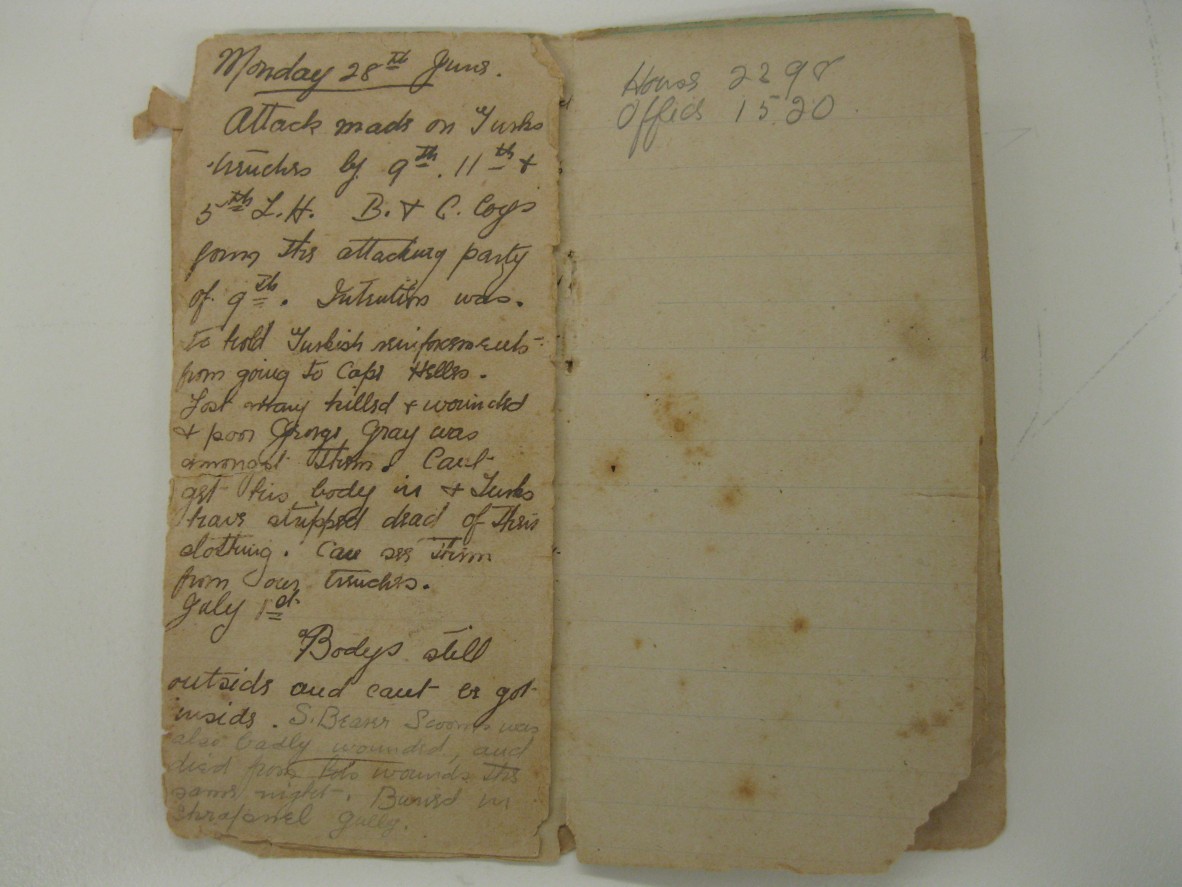 Monday 28th June.
Attack made on Turks
trenches by 9th. 11th +
5th L.H. B. + C. Coys
form the attacking party
of 9th. Intention was.
to hold Turkish reinforcements
from going to Cape Helles.
Lost many killed + wounded
+ poor George Gray was
amongst them. Cant
get his body in + Turks
have stripped dead of their
clothing. Can see them
from our trenches.
July 1st
Bodys still
outside and cant be got
inside. S. Bearer was
also badly wounded, and
died from his wounds the
same night. Buried in
shrapnel gully.
House 2298
Office 1520